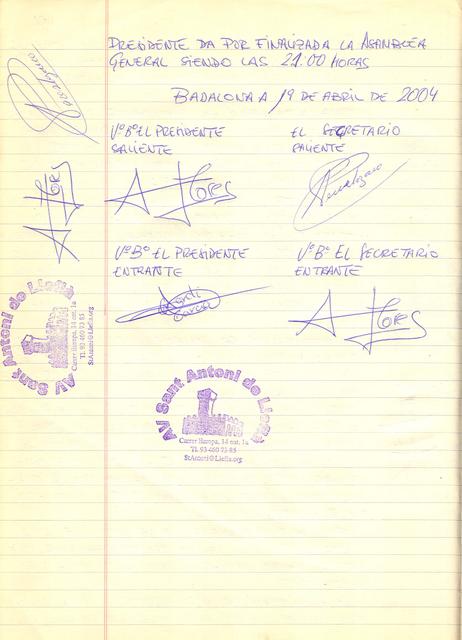 PRESIDENTE DA POR FINALIZADA LA ASAMBLEA
GENERAL SIENDO LAS 21.00 HORAS
BADALONA A 19 DE ABRIL DE 2004
VºBº EL PRESIDENTE
SALIENTE
EL SECRETARIO
SALIENTE
A Flores
A Flores
VºBº EL PRESIDENTE
ENTRANTE
VºBº EL SECRETARIO
ENTRANTE
Jordi
Garcia
A Flores
AV Sant Antoni de Llefià
Carrer Europa, 14 ent. 1a
Tl. 93 460 73 85
StAntoni@Llefia.org
AV Sant Antoni de Llefià
Carrer Europa, 14 ent. 1a
Tl. 93-460 73-85
StAntoni@Llefia.org